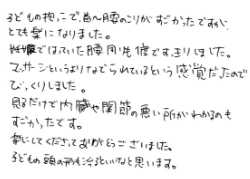 子どもの抱っこで、首〜腰のこりがすごかったですが、
とても楽になりました。
はっていた腰周りも1度で治まりました。
マッサージというよりなでられているという感覚だったので
びっくりしました。
見るだけで内臓や関節の悪い所がわかるのも
すごかったです。
楽にしてくださってありがとうございました。
子どもの頭の形も治るといいなと思います。